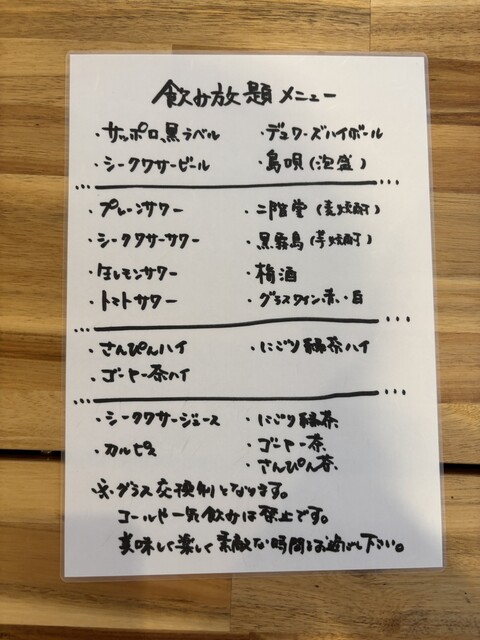 飲み放題メニュー
・サッポロ黒ラベル ・デュワーズハイボール
・シークワサービール ・島唄(泡盛)
・プレーンサワー ・二階堂(麦焼酎)
・シークワサーサワー ・黒霧島(芋焼酎)
・生レモンサワー ・梅酒
・トマトサワー ・グラスワイン赤・白
・さんぴんハイ ・にごり緑茶ハイ
・ゴーヤー茶ハイ
・シークワサージュース ・にごり緑茶
・カルピス ・ゴーヤー茶
・さんぴん茶
※グラス交換制となります。
コールや一気飲みは禁止です。
美味しく楽しく素敵な時間をお過ごし下さい。